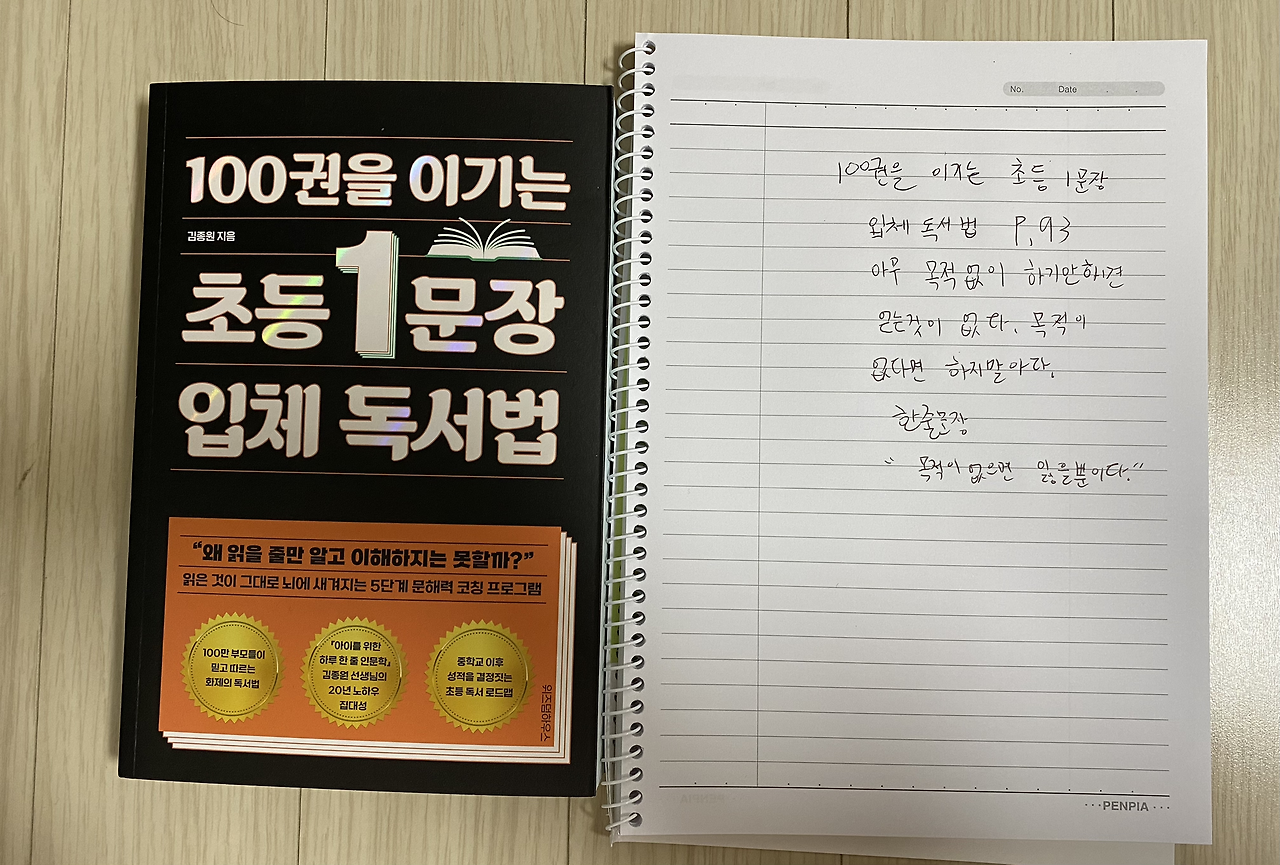 100권을 이기는
김종원 지음
초등 1 문장
입체 독서법
“왜 읽을 줄만 알고 이해하지는 못할까?”
읽은 것이 그대로 뇌에 새겨지는 5단계 문해력 코칭 프로그램
100만 부모들이
믿고 따르는
화제의 독서법
『아이를 위한
하루 한 줄 인문학』
김종원 선생님의
20년 노하우
집대성
중학교 이후
성적을 결정짓는
초등 독서 로드맵
위즈덤하우스
No. Date
100권을 이기는 초등 1문장
입체 독서법 P.93
아무 목적없이 하기만하면
얻는것이 없다. 목적이
없다면 하지말아다.
한줄문장
" 목적이 없으면 잃을뿐이다."
PENPIA